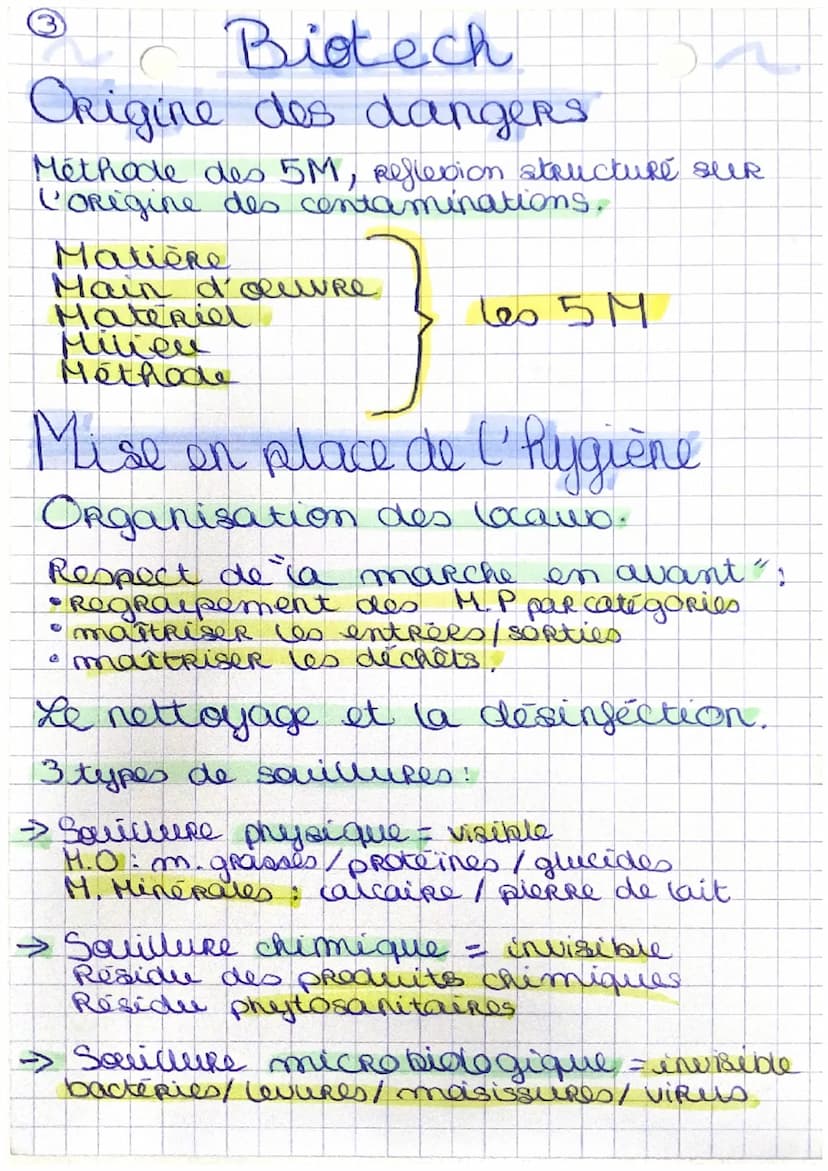 ③
Biotech
Origine des dangers
Méthode des 5M, reflexion structuré sur
l'origine des contaminations.
Matière
Main d'œuvre
Matériel
Milieu
Méthode
les 5M
Mise en place de l'hygiène
Organisation des locaux.
Respect de "la marche en avant":
• regroupement des M.P par catégories
• maîtriser les entrées/sorties
• maîtriser les déchêts.
Le nettoyage et la désinféction.
3 types de souillures:
→ Souillure physique = visible
M.O: m. grasses/protéïnes/glucides
M. Minérales: calcaire / pierre de lait
→ Souillure chimique = invisible
Résidu des produits chimiques
Résidu phytosanitaires
→ Souillure microbiologique = invisible
bactéries/levures/moisissures/virus